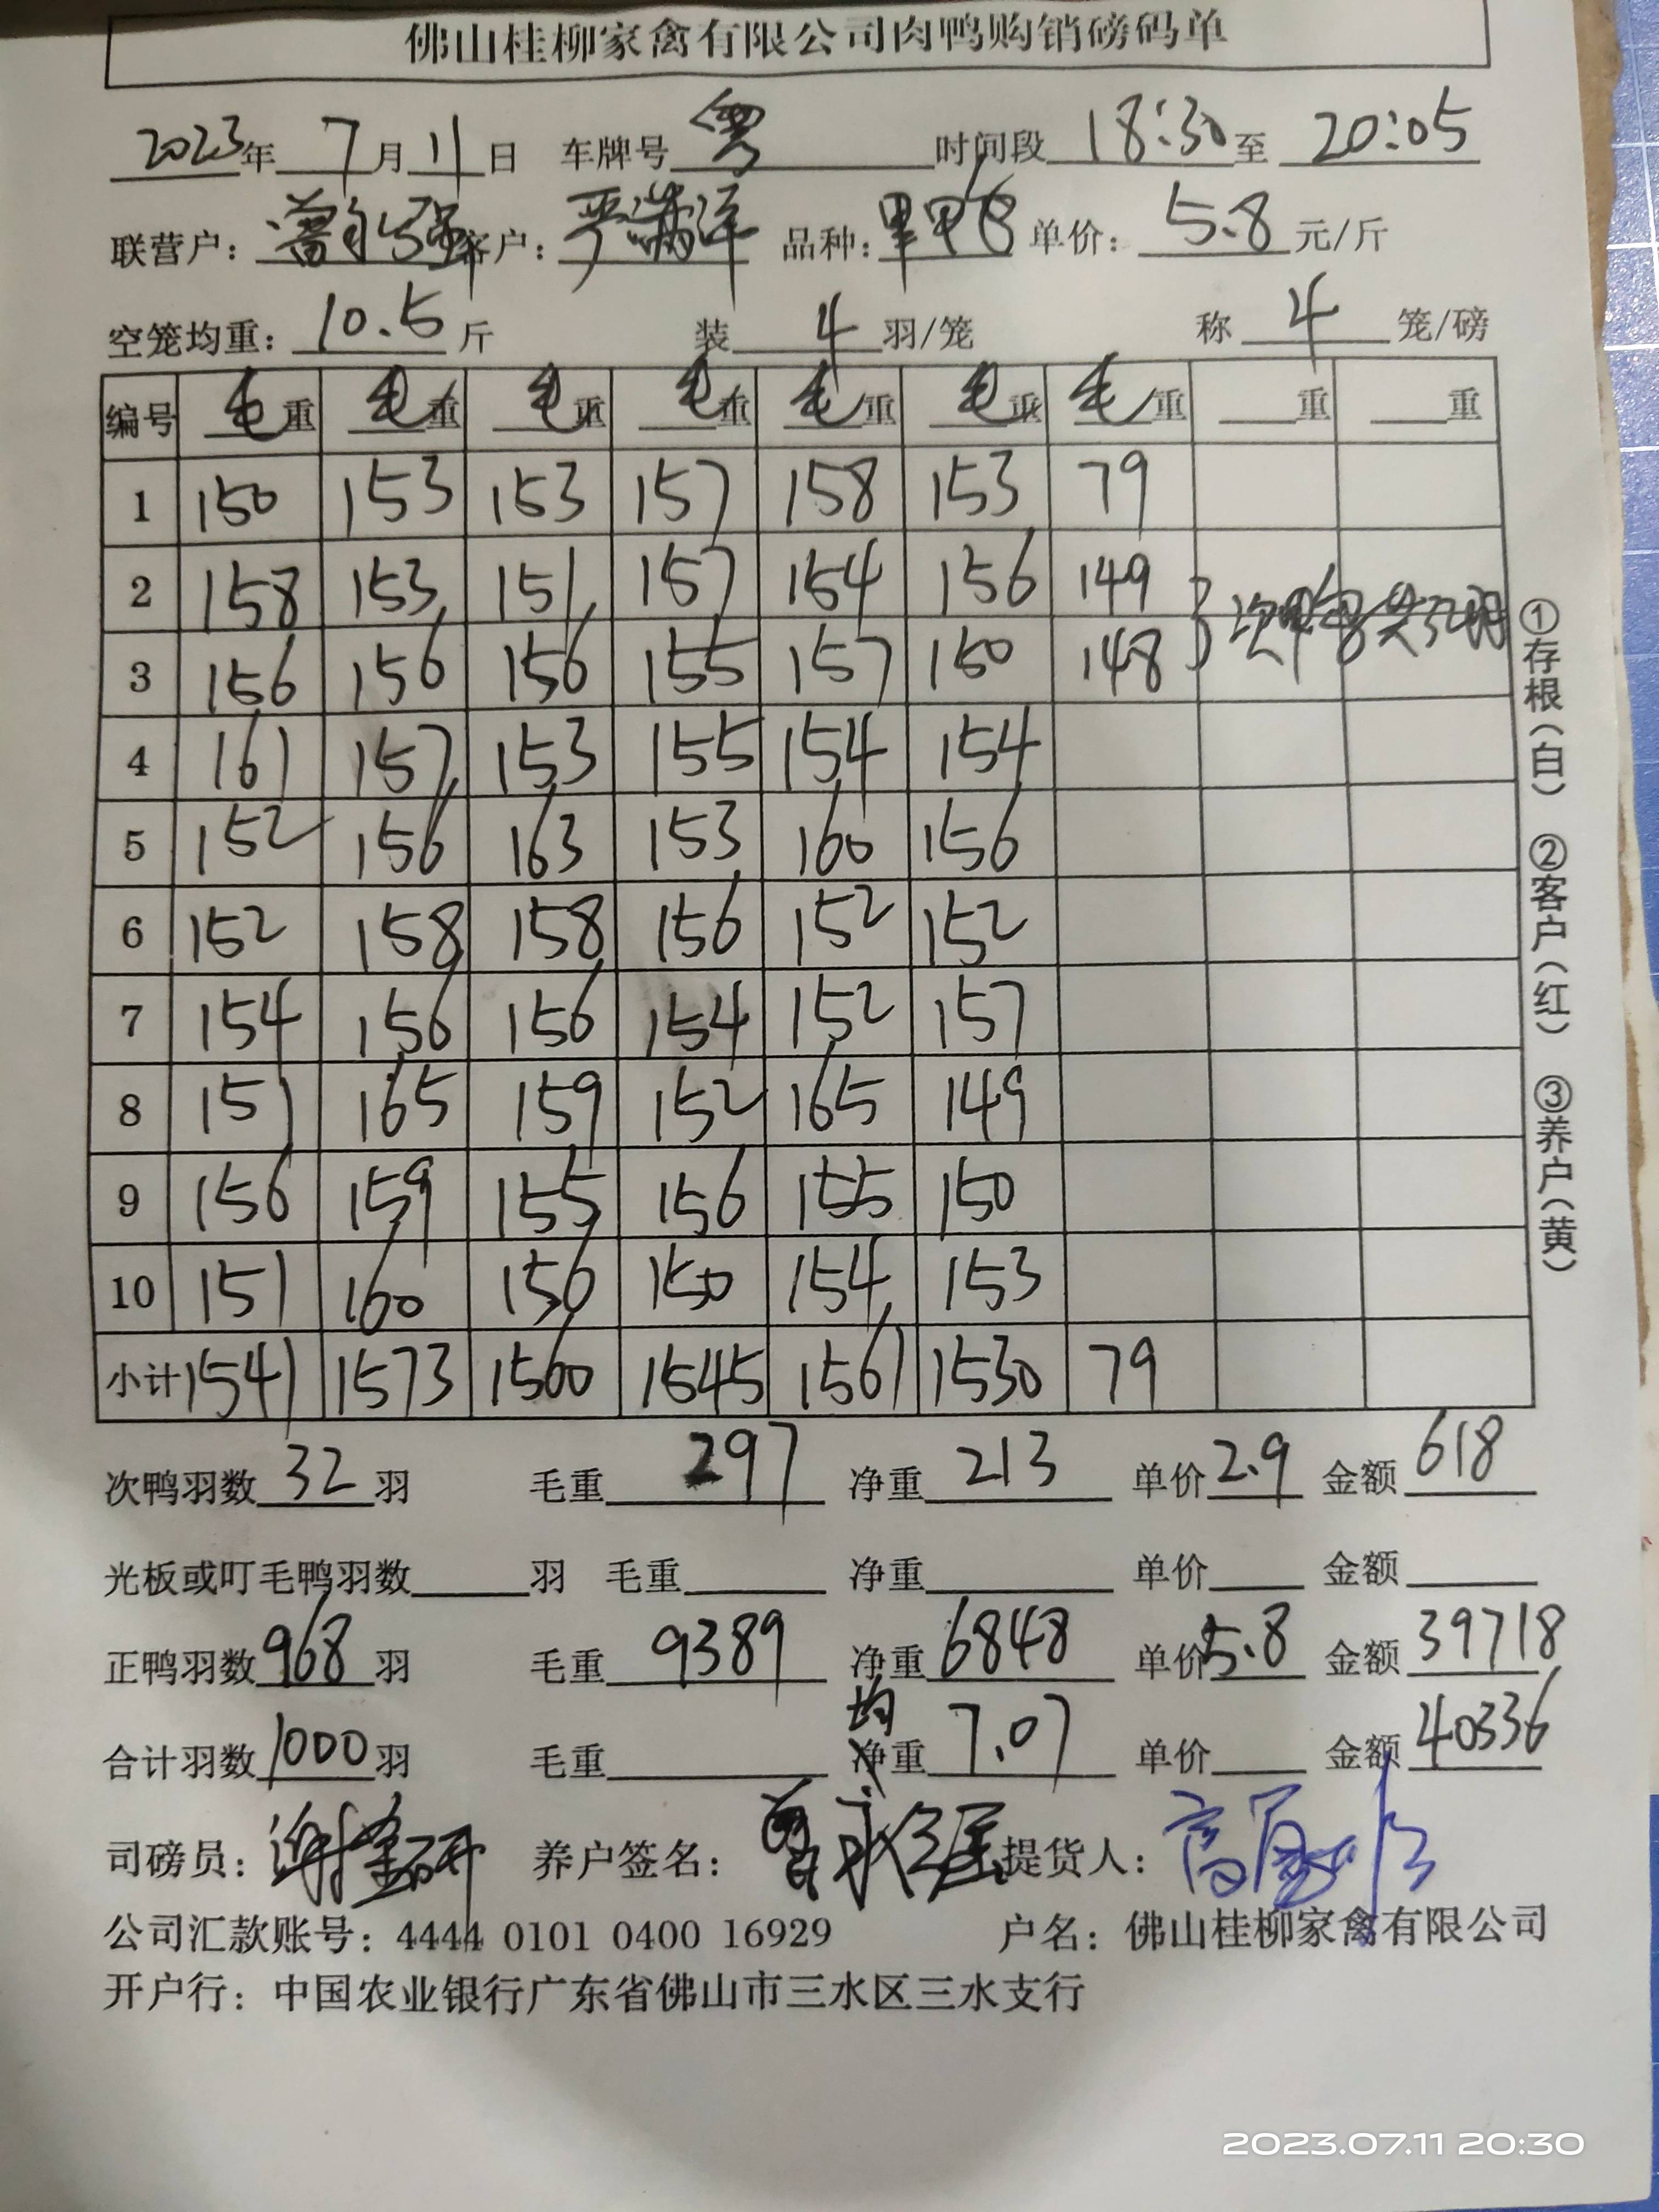 佛山桂柳家禽有限公司肉鸭购销磅码单
2023年 7月11日 车牌号 粤 时间段 18:30至 20:05
联营户: 曾永强 客户: 严满洋 品种: 单价: 5.8 元/斤
空笼均重: 10.5 斤 装 4 羽/笼 称 4 笼/磅
编号 毛重 毛重 毛重 毛重 毛重 毛重 毛重 重 重
1 150 153 153 157 158 153 79
2 158 153 151 157 154 156 149
3 156 156 156 155 157 150 148 } 次鸭 共32羽
4 161 157 153 155 154 154
5 152 156 163 153 160 156
6 152 158 158 156 152 152
7 154 156 156 154 152 157
8 151 165 159 152 165 149
9 156 159 155 156 155 150
10 151 160 156 150 154 153
小计 1541 1573 1560 1545 1561 1530 79
次鸭羽数 32 羽 毛重 297 净重 213 单价 2.9 金额 618
光板或叮毛鸭羽数 羽 毛重 净重 单价 金额
正鸭羽数 968 羽 毛重 9389 净重 6848 单价 5.8 金额 39718
合计羽数 1000 羽 毛重 均 净重 7.07 单价 金额 40336
司磅员: 养户签名: 曾永强 提货人:
公司汇款账号: 4444 0101 0400 16929 户名: 佛山桂柳家禽有限公司
开户行: 中国农业银行广东省佛山市三水区三水支行
①存根(白) ②客户(红) ③养户(黄)
2023.07.11 20:30